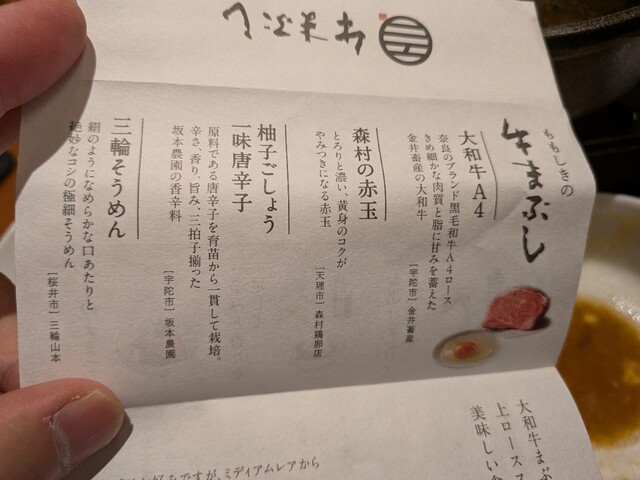 ももしきの
牛まぶし
大和牛A4
奈良のブランド黒毛和牛A4ロース
きめ細かな肉質と脂に甘みを蓄えた
金井畜産の大和牛
[宇陀市]金井畜産
森村の赤玉
とろりと濃い、黄身のコクが
やみつきになる赤玉
[天理市]森村鶏卵店
柚子ごしょう
一味唐辛子
原料である唐辛子を育苗から一貫して栽培。
辛さ、香り、旨み、三拍子揃った
坂本農園の香辛料
[宇陀市]坂本農園
三輪そうめん
絹のようになめらかな口あたりと
絶妙なコシの極細そうめん
[桜井市]三輪山本
大和牛まぶ
上ロース
美味しい
ですが、ミディアムレアから